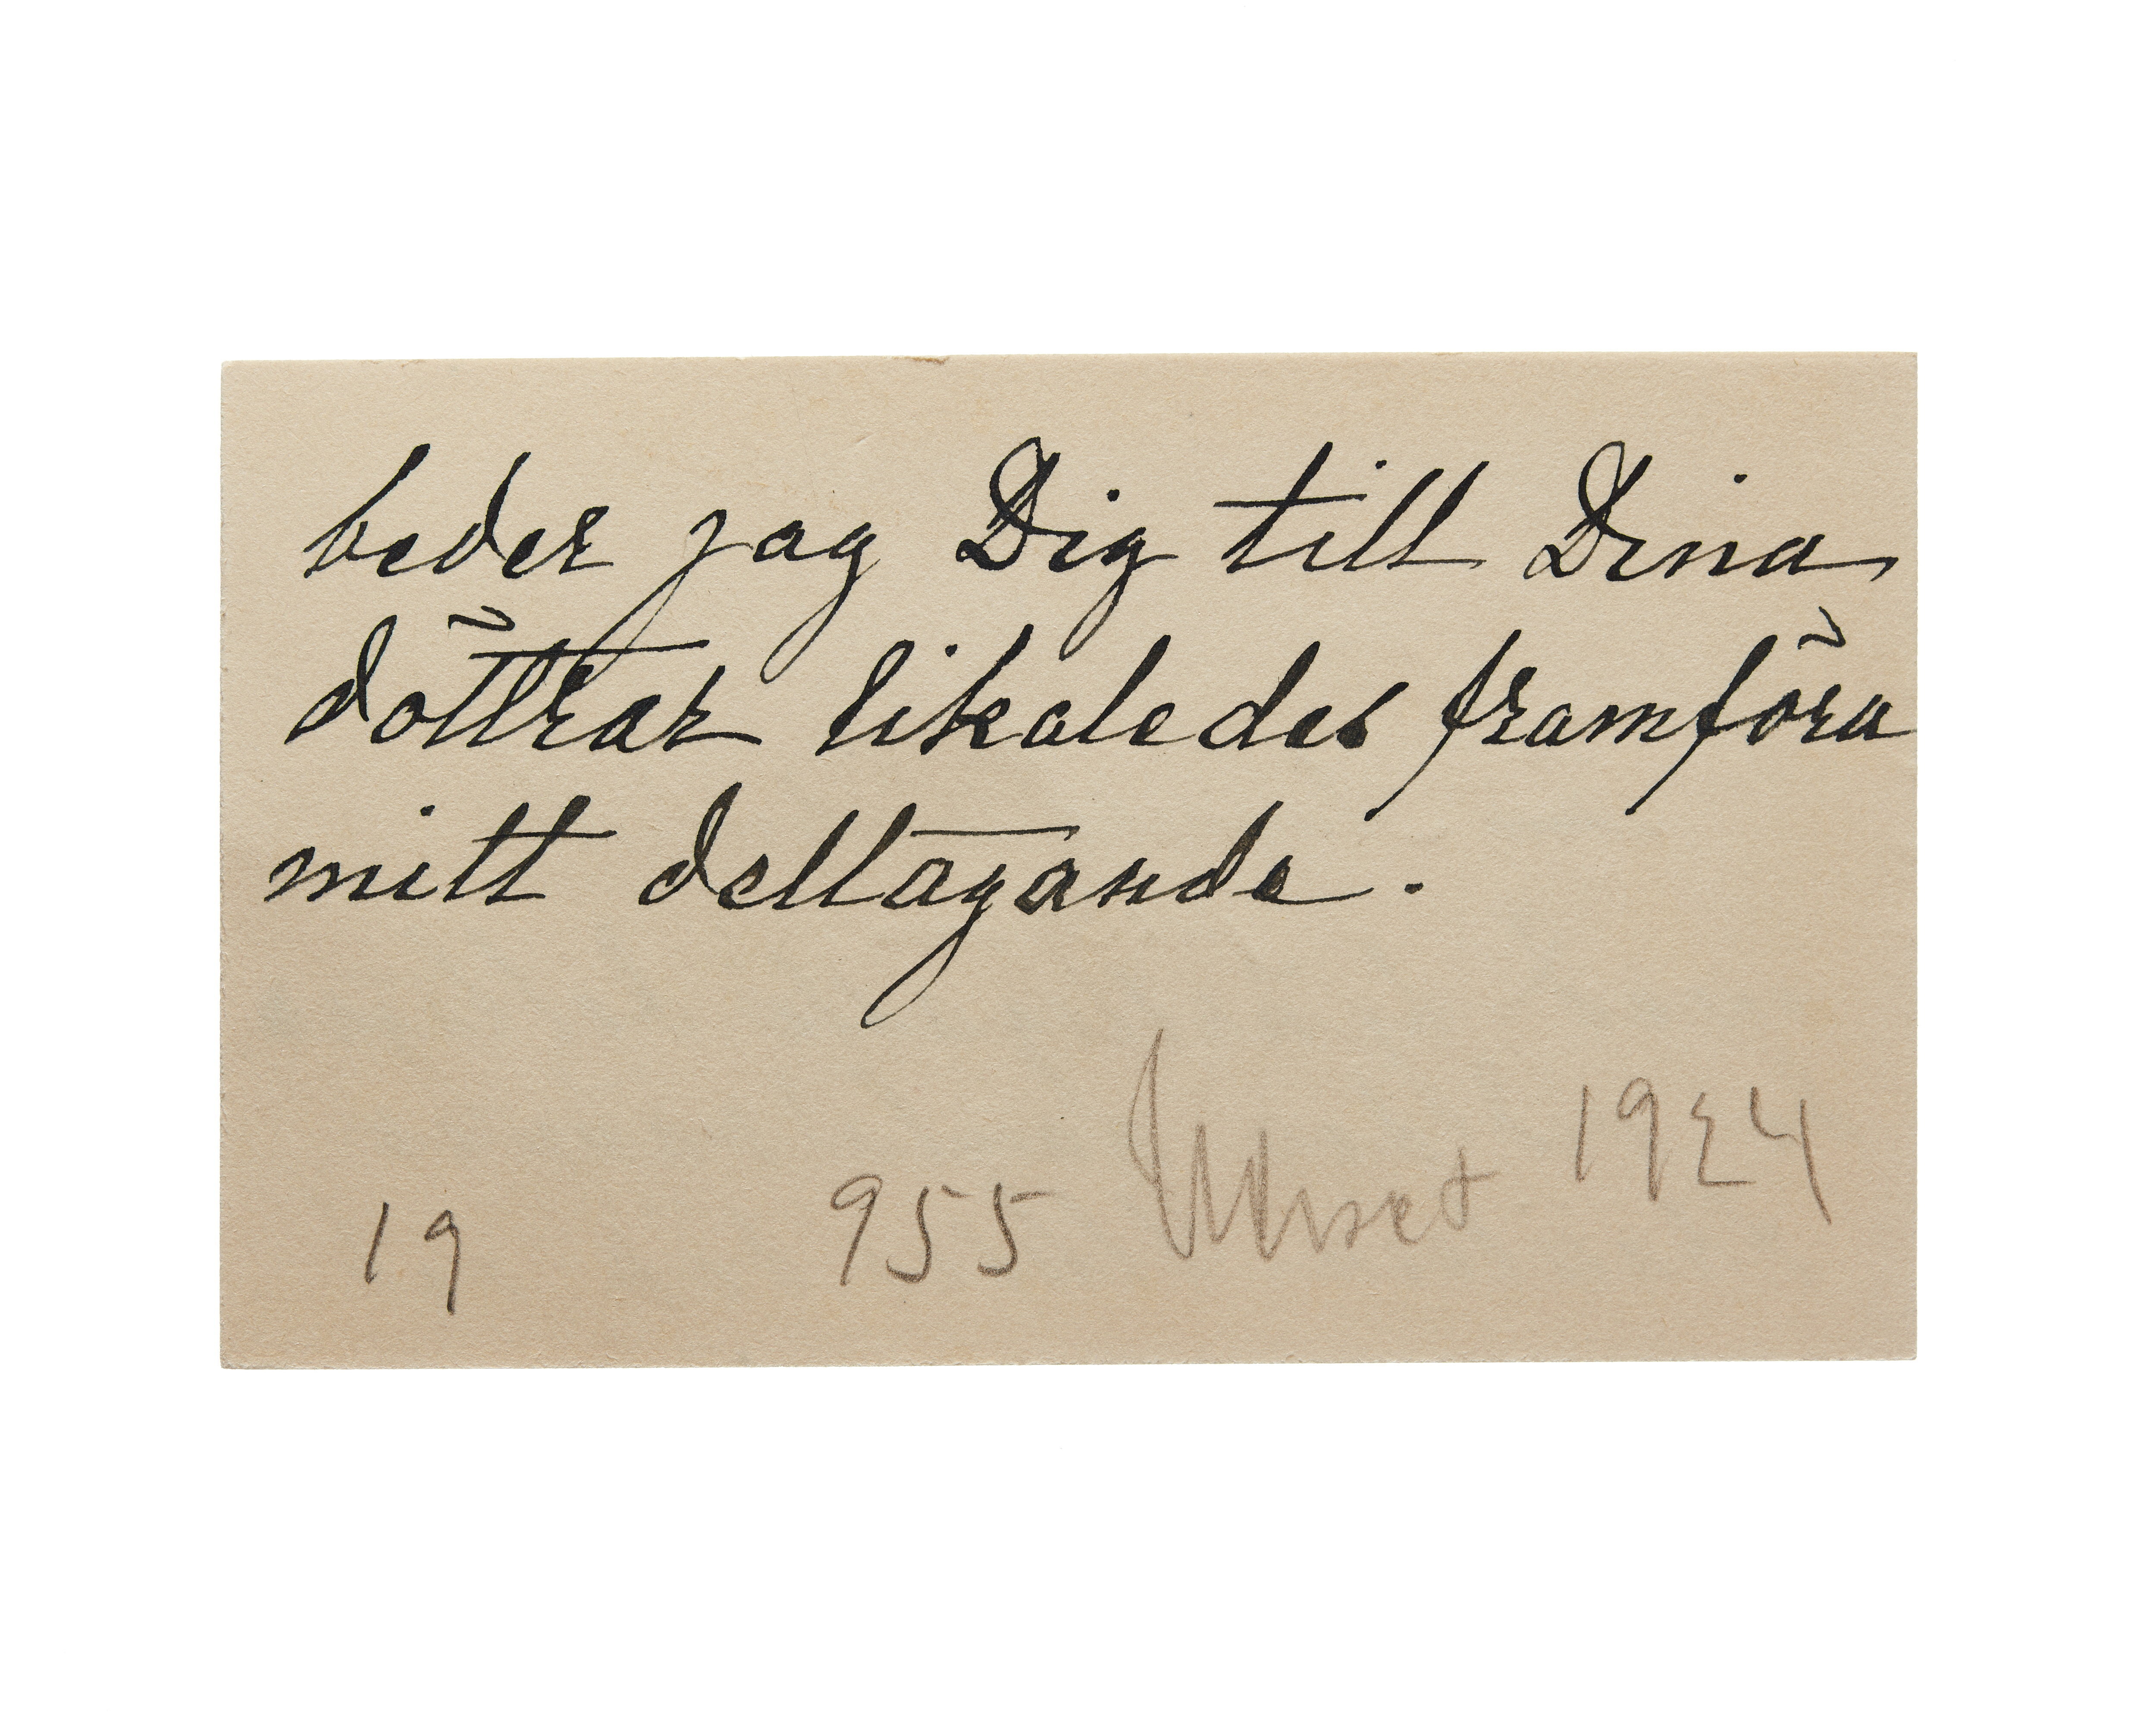 beder jag Dig till Dina
döttrar likaledes framföra
mitt deltagande.
1924
19 955